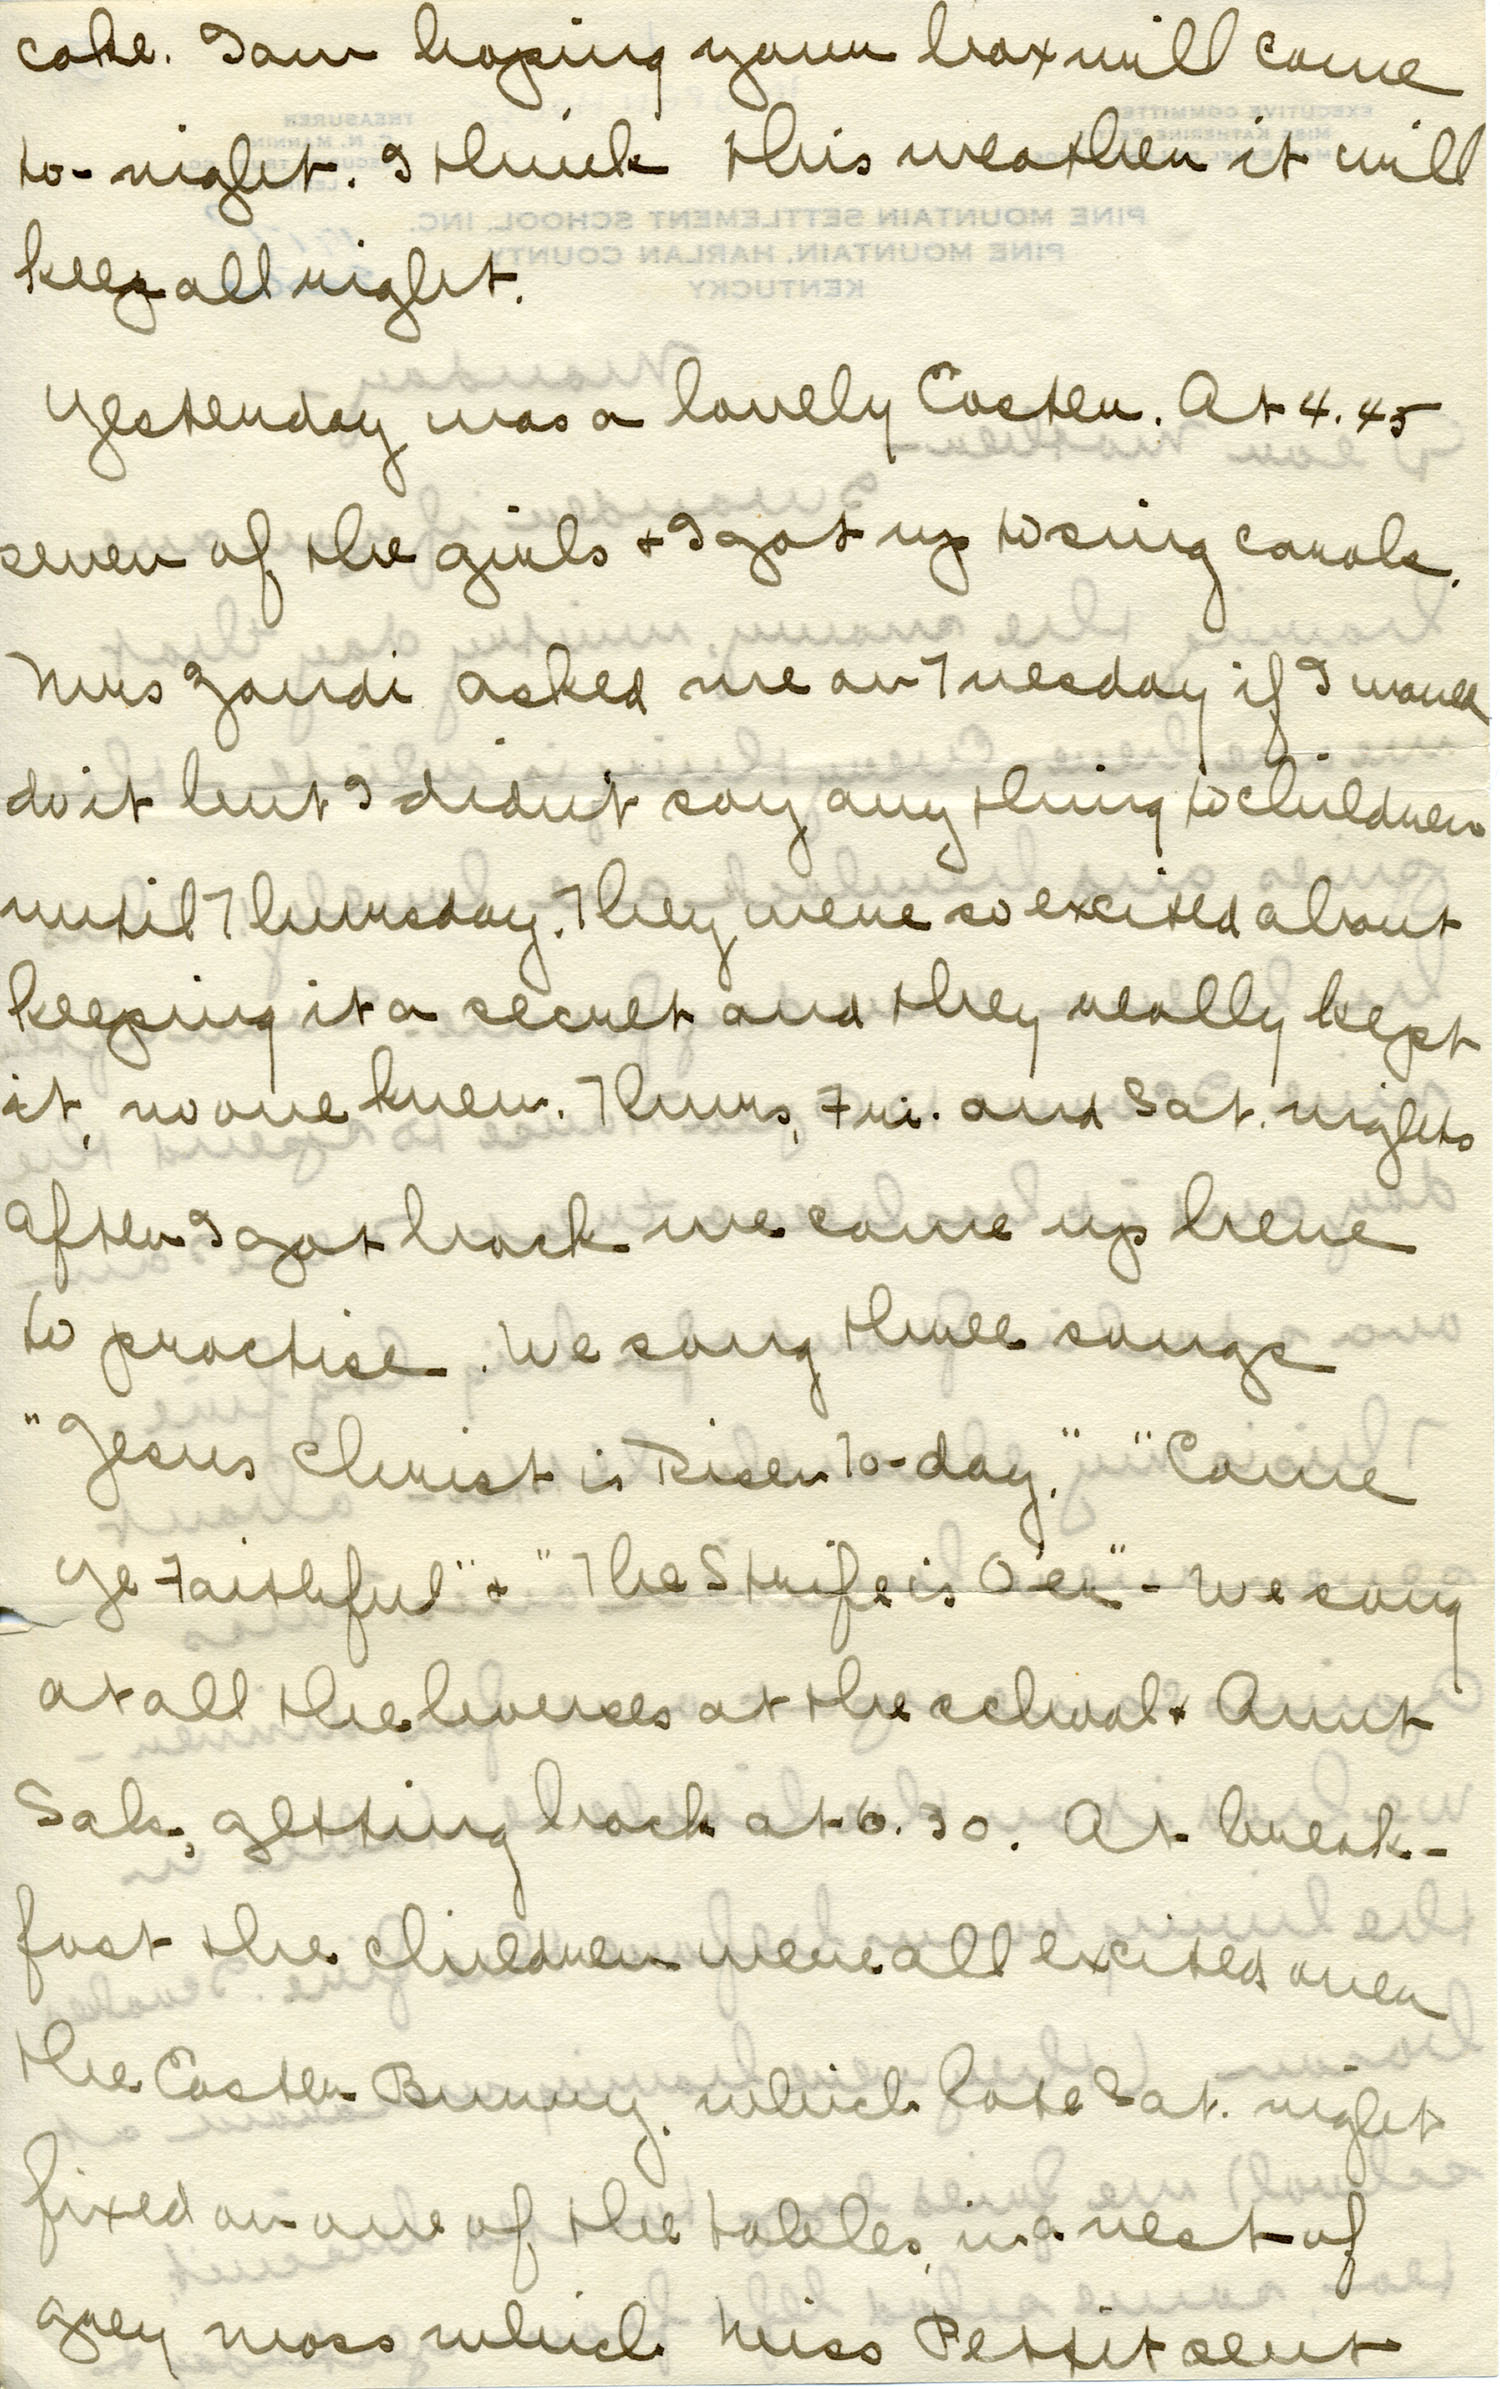 cake. I am hoping your box will come
to-night. I think this weather it will
keep all right.
Yesterday was a lovely Easter. At 4.45
seven of the girls + I got up to sing carols.
Mrs Zande asked me on Tuesday if I would
do it but I didn't say anything to children
until Thursday. They were so excited about
keeping it a secret and they really kept
it, no one knew. Thurs, Fri. and Sat. nights
after I got back we came up here
to practise. We sang three songs
"Jesus Christ is Risen To-day." "Come
ye Faithful" + "The Strife is O'er" - We sang
at all the houses at the school + Aunt
Sal's, getting back at 6.30. At break-
fast the children were all excited over
the Easter Bunny. which late Sat. night
fixed on one of the tables, in a nest of
grey moss which Miss Pettit sent